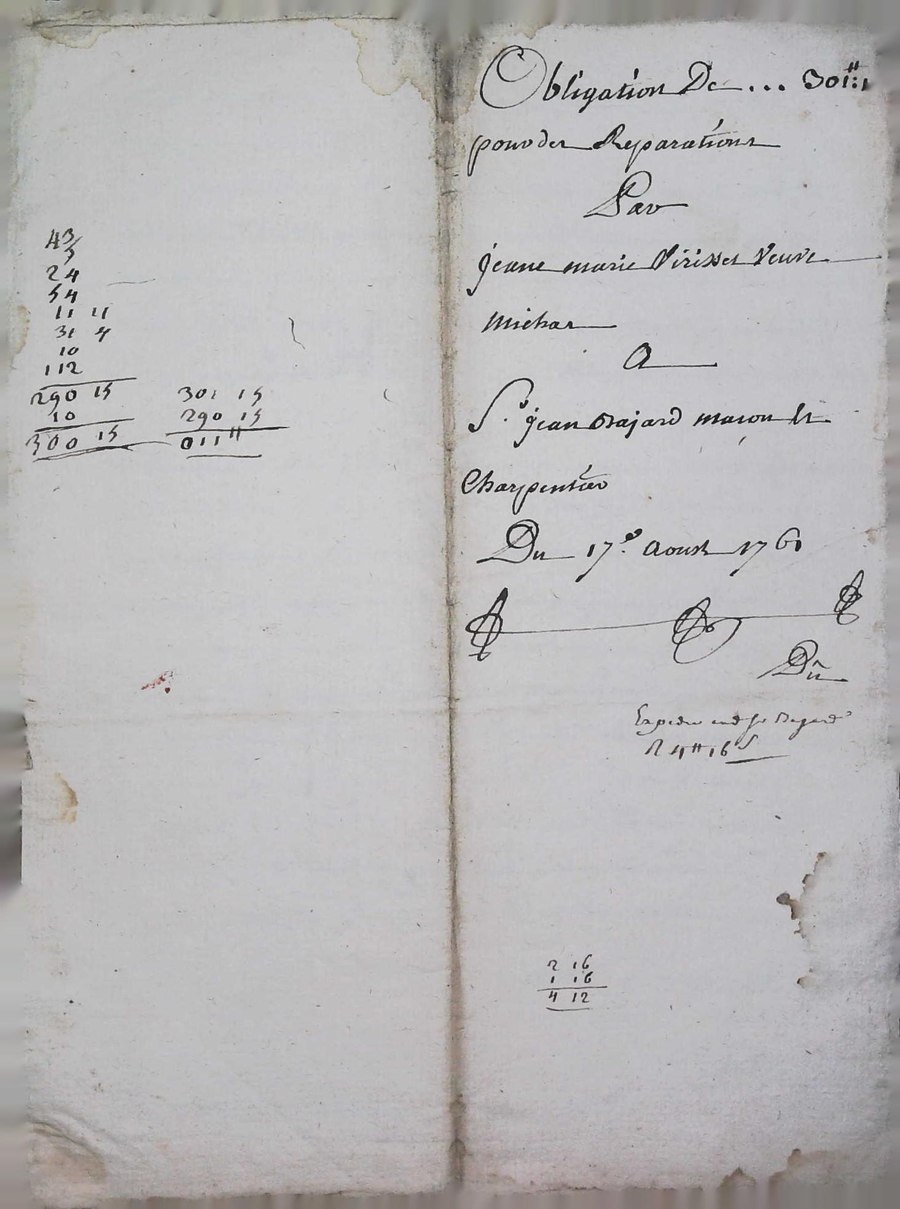 43
5
24
54
11 11
31 4
10
112
290 15
10
300 15
301 15
290 15
011 ₶
Obligation De ... 301₶:1
pour des Reparations
Par
jeane marie Virisset Veuve
Michar
A
S.r jean Bajard mason et
Charpentier
Du 17.e Aoust 1761
Du
Expedié
R 4₶ 16 s
2 16
1 16
4 12